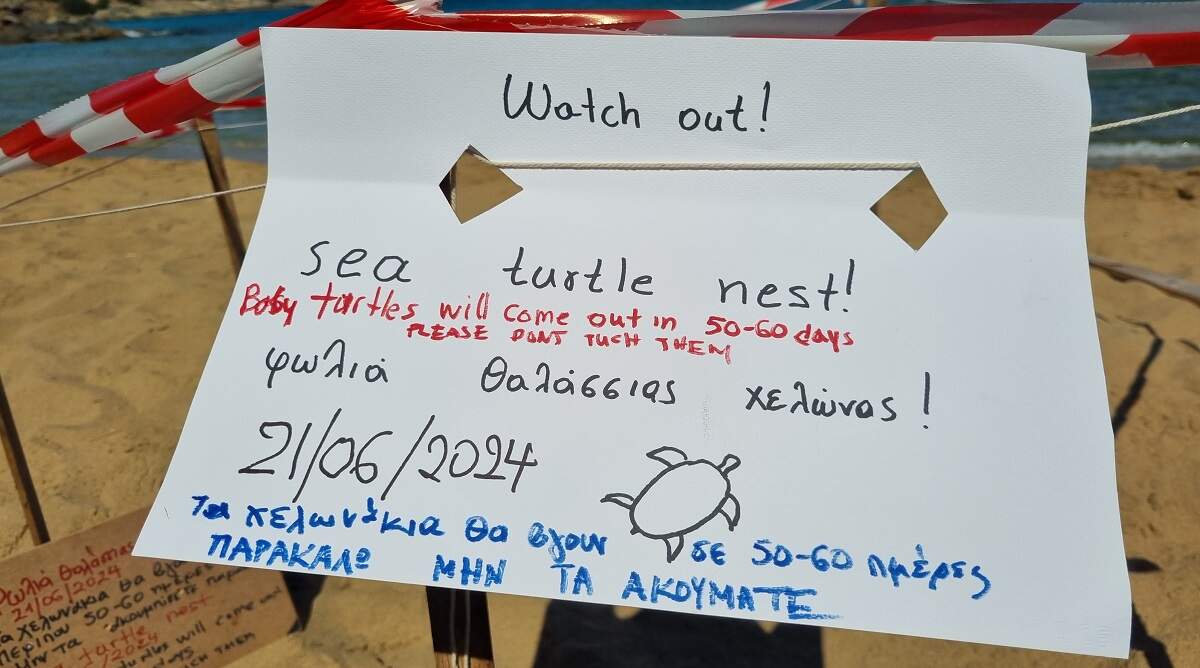 Watch out!
sea turtle nest!
Baby turtles will come out in 50-60 days
PLEASE DONT TUCH THEM
φωλιά θαλάσσιας χελώνας!
21/06/2024
Τα χελωνάκια θα βγουν σε 50-60 ημέρες
ΠΑΡΑΚΑΛΩ ΜΗΝ ΤΑ ΑΚΟΥΜΑΤΕ
φωλιά θαλάσσιας
21/06/2024
Τα χελωνάκια θα
περίπου 50-60 ημέρες
Μην τα
turtle nest
/2024
will come out
days
TUCH THEM